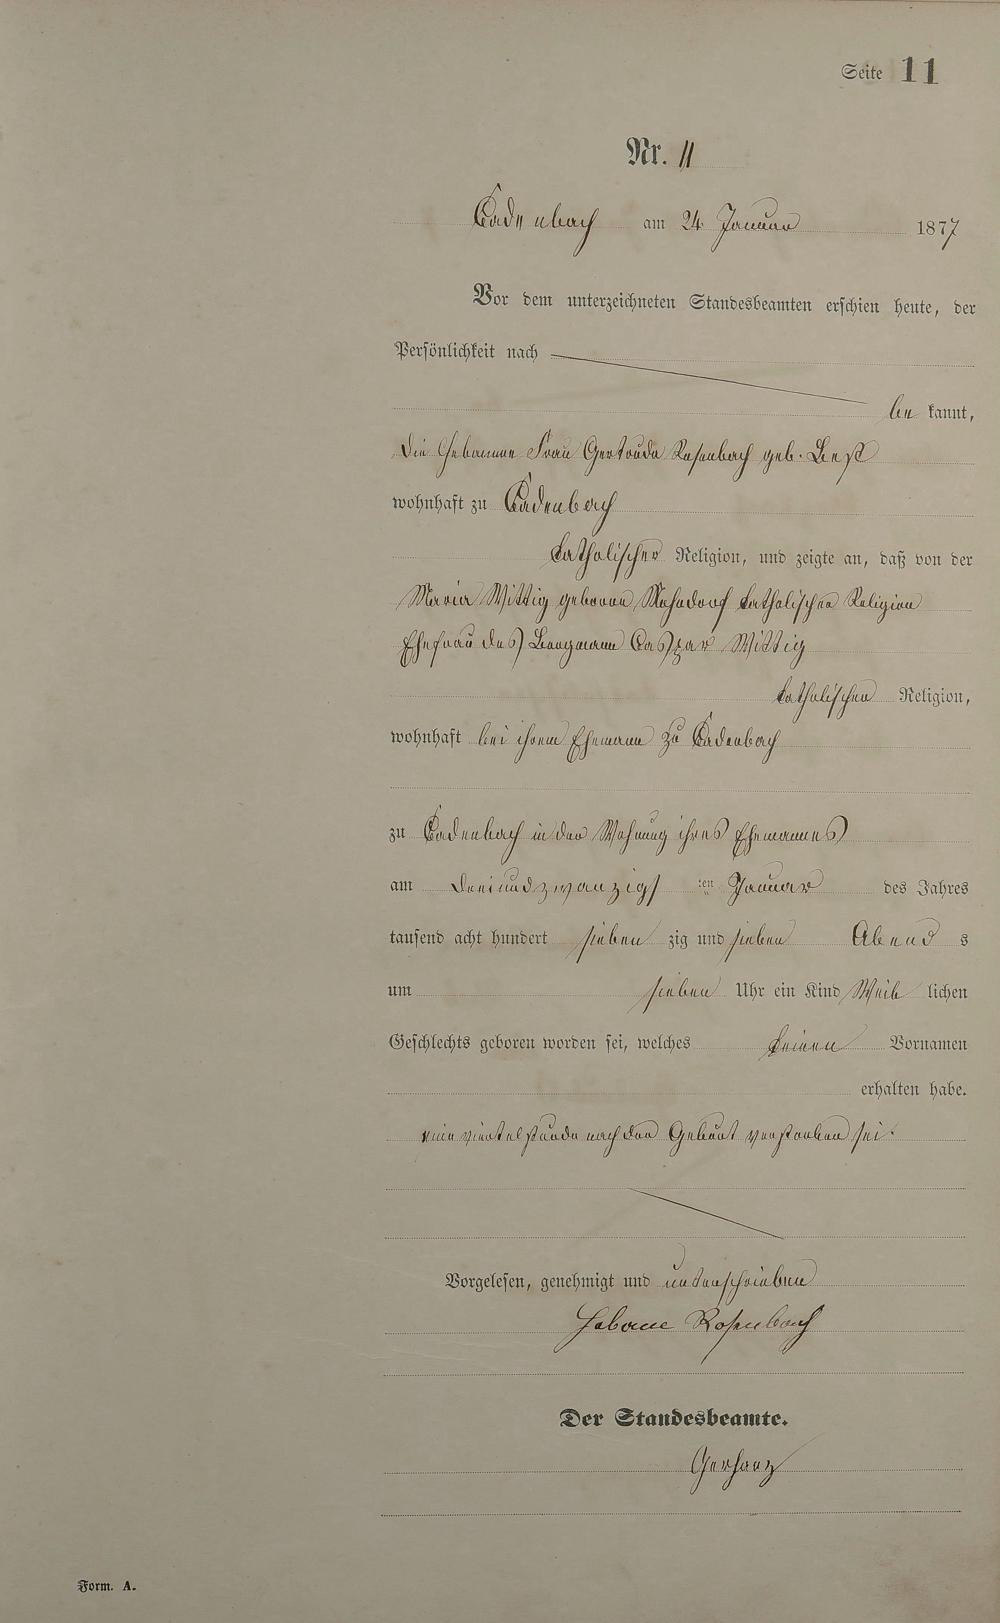 Seite 11
Nr. 11
Cadenbach am 24 Januar 1877
Vor dem unterzeichneten Standesbeamten erschien heute, der
Persönlichkeit nach
be kannt,
die Hebamme Frau Gertruda Rosenbach geb. Best
wohnhaft zu Cadenbach
katholischer Religion, und zeigte an, daß von der
Maria Wittig geborene katholischer Religion
Ehefrau des Bergmann Caspar Wittig
katholischer Religion,
wohnhaft bei ihrem Ehemann zu Cadenbach
zu Cadenbach in der Wohnung ihres Ehemannes
am dreiundzwanzigs ten Januar des Jahres
tausend acht hundert sieben zig und sieben Abend s
um sieben Uhr ein Kind Weib lichen
Geschlechts geboren worden sei, welches keinen Vornamen
erhalten habe.
eine viertelstunde nach der Geburt verstorben sei.
Vorgelesen, genehmigt und unterschrieben
Hebame Rosenbach
Der Standesbeamte.
Gerharz
Form. A.